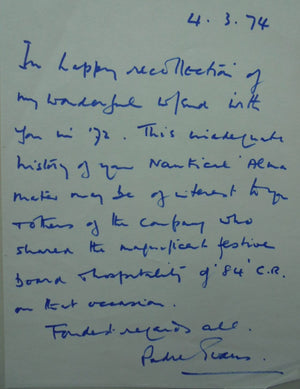 4.3.74
In happy recollection of
my wonderful w/end with
you in '72. This inadequate
history of your Nautical Alma
mater may be of interest to you
& others of the company who
shared the magnificent festive
board & hospitality of '84' C.R.
on that occasion.
Fondest regards all.
Padre Evans.